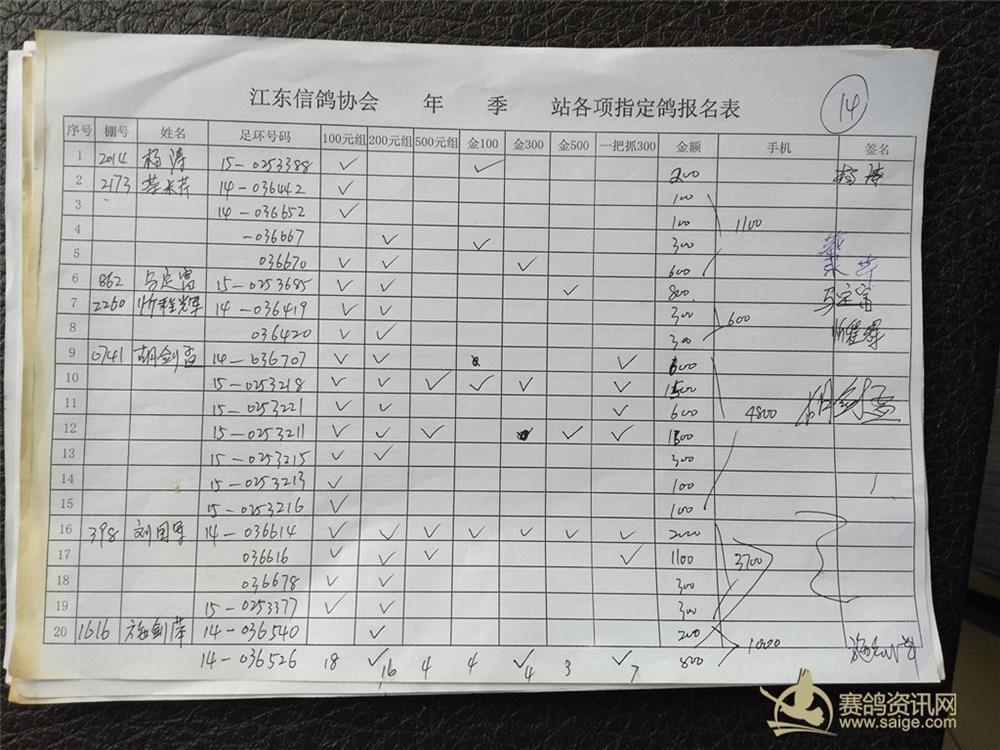 江东信鸽协会 年 季 站各项指定鸽报名表 14
序号 棚号 姓名 足环号码 100元组 200元组 500元组 金100 金300 金500 一把抓300 金额 手机 签名
1 2014 杨涛 15-0253388 ✓ ✓ 200 杨涛
2 2173 14-036442 ✓ 100
3 14-036652 ✓ 100 1100
4 -036667 ✓ ✓ 300
5 036670 ✓ ✓ ✓ 600
6 862 马定富 15-0253685 ✓ ✓ ✓ 800 马定富
7 2260 忻程辉 14-036419 ✓ ✓ 300 600 忻程辉
8 036420 ✓ ✓ 300
9 0741 胡剑孟 14-036707 ✓ ✓ ✓ 600
10 15-0253218 ✓ ✓ ✓ ✓ ✓ ✓ 1500
11 15-0253221 ✓ ✓ ✓ 600 4800 胡剑孟
12 15-0253211 ✓ ✓ ✓ ✓ ✓ ✓
13 15-0253215 ✓ ✓ 300
14 15-0253213 ✓ 100
15 15-0253216 ✓ 100
16 398 刘国军 14-036614 ✓ ✓ ✓ ✓ ✓ ✓ ✓ 2000
17 036616 ✓ ✓ ✓ ✓ 1100 3700
18 036678 ✓ ✓ 300
19 15-0253377 ✓ ✓ 300
20 1616 14-036540 ✓ 200 1000
14-036526 18 ✓ 16 4 4 ✓ 4 3 ✓ 7 800
赛鸽资讯网
www.saige.com